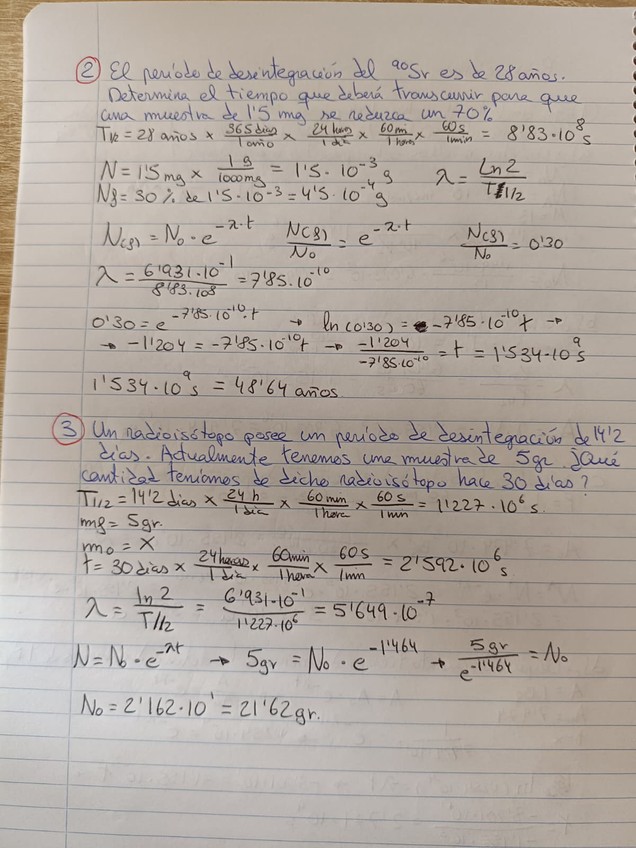 ② El período de desintegración del ⁹⁰Sr es de 28 años.
Determina el tiempo que deberá transcurrir para que
una muestra de 1'5 mg se reduzca un 70%
T1/2 = 28 años × 365 días/1 año × 24 horas/1 día × 60 m/1 hora × 60 s/1 min = 8'83·10⁸ s
N = 1'5 mg × 1 g/1000 mg = 1'5 · 10⁻³ g   λ = Ln 2/T1/2
Nf = 30 % de 1'5·10⁻³ = 4'5·10⁻⁴ g
N(f) = N₀ · e^(-λ·t)   N(f)/N₀ = e^(-λ·t)   N(f)/N₀ = 0'30
λ = 6'931·10⁻¹/8'83·10⁸ = 7'85·10⁻¹⁰
0'30 = e^(-7'85·10⁻¹⁰·t) → ln(0'30) = -7'85·10⁻¹⁰t →
→ -1'204 = -7'85·10⁻¹⁰t → -1'204/-7'85·10⁻¹⁰ = t = 1'534·10⁹ s
1'534·10⁹ s = 48'64 años
③ Un radioisótopo posee un período de desintegración de 14'2
días. Actualmente tenemos una muestra de 5gr. ¿Qué
cantidad teníamos de dicho radioisótopo hace 30 días?
T1/2 = 14'2 días × 24 h/1 día × 60 min/1 hora × 60 s/1 min = 1'227·10⁶ s
mf = 5gr.
m₀ = X
t = 30 días × 24 horas/1 día × 60 min/1 hora × 60 s/1 min = 2'592·10⁶ s
λ = ln 2/T1/2 = 6'931·10⁻¹/1'227·10⁶ = 5'649·10⁻⁷
N = N₀·e^(-λt) → 5gr = N₀ · e^(-1'464) → 5gr/e^(-1'464) = N₀
N₀ = 2'162·10¹ = 21'62 gr.